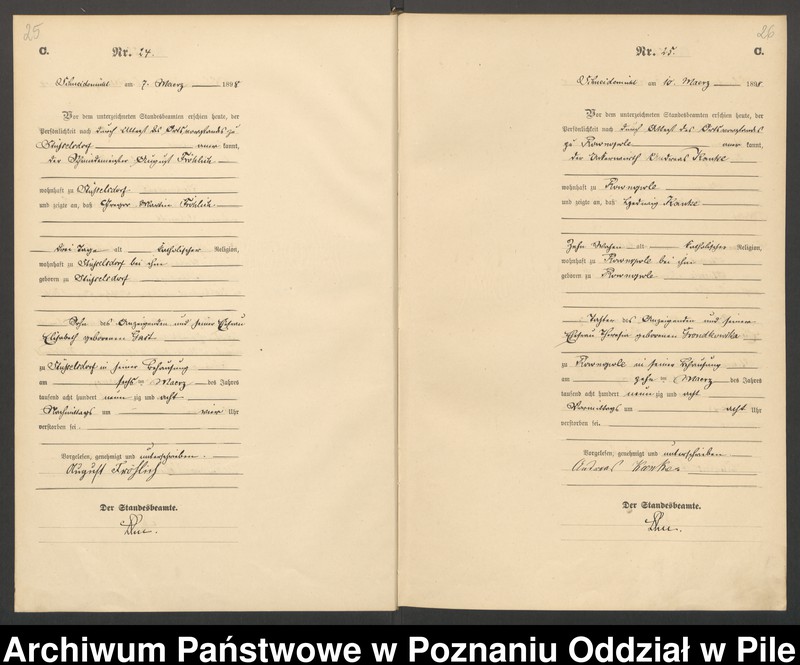 25
C.
Nr. 24.
Schneidemühl am 7. Maerz 1898
Vor dem unterzeichneten Standesbeamten erschien heute, der
Persönlichkeit nach durch Attest des Ortsvorstands zu
Stüsselsdorf kannt,
der August Fröhlich
wohnhaft zu Stüsselsdorf
und zeigte an, daß Gregor Martin Fröhlich
drei Tage alt katholischer Religion,
wohnhaft zu Stüsselsdorf bei ihm
geboren zu Stüsselsdorf
Sohn des Anzeigenden und seiner Ehefrau
Elisabeth geborenen
zu Stüsselsdorf in seiner Behausung
am sechsten Maerz des Jahres
tausend acht hundert neunzig und acht
Nachmittags um vier Uhr
verstorben sei.
Vorgelesen, genehmigt und unterschrieben.
August Fröhlich
Der Standesbeamte.
26
Nr. 25.
C.
Schneidemühl am 10. Maerz 1898
Vor dem unterzeichneten Standesbeamten erschien heute, der
Persönlichkeit nach durch Attest des Ortsvorstands
zu kannt,
der Unterwirth Andreas Kanke
wohnhaft zu
und zeigte an, daß Hedwig Kanke
Zehn Wochen alt katholischer Religion,
wohnhaft zu bei ihm
geboren zu
Tochter des Anzeigenden und seiner
Ehefrau Theresia geborenen
zu in seiner Behausung
am zehnten Maerz des Jahres
tausend acht hundert neunzig und acht
Vormittags um acht Uhr
verstorben sei.
Vorgelesen, genehmigt und unterschrieben
Andreas Kanke
Der Standesbeamte.
Archiwum Państwowe w Poznaniu Oddział w Pile